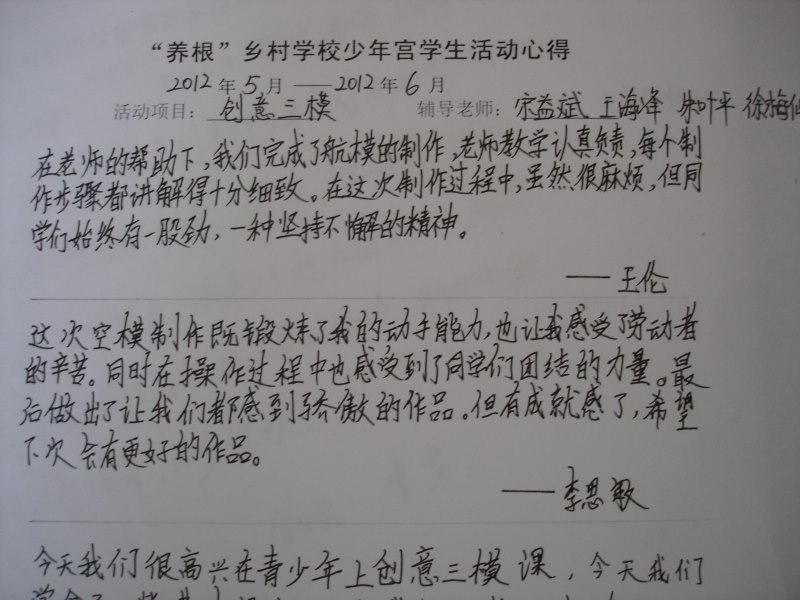 “养根”乡村学校少年宫学生活动心得
2012年5月——2012年6月
活动项目：创意三模 辅导老师：宋益斌 王海峰 朱叶平 徐梅仙
在老师的帮助下，我们完成了航模的制作，老师教学认真负责，每个制
作步骤都讲解得十分细致。在这次制作过程中，虽然很麻烦，但同
学们始终有一股劲，一种坚持不懈的精神。
——王伦
这次空模制作既锻炼了我的动手能力，也让我感受了劳动者
的辛苦。同时在操作过程中也感受到了同学们团结的力量。最
后做出了让我们都感到骄傲的作品。但有成就感了，希望
下次会有更好的作品。
——李思敏
今天我们很高兴在青少年上创意三模课，今天我们